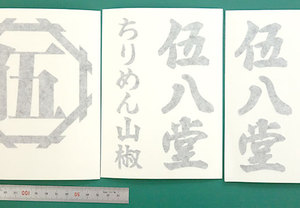 伍
伍八堂
ちりめん山椒
伍八堂
100